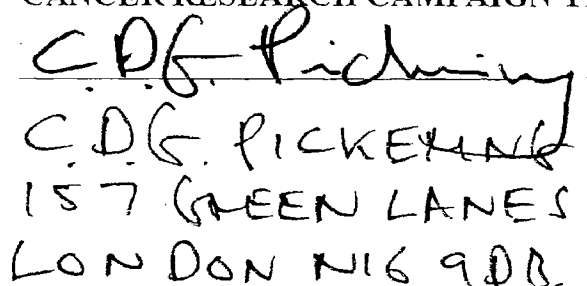 CANCER RESEARCH CAMPAIGN
C.D.G. Pickering
C.D.G. PICKERING
157 GREEN LANES
LONDON N16 9DB.